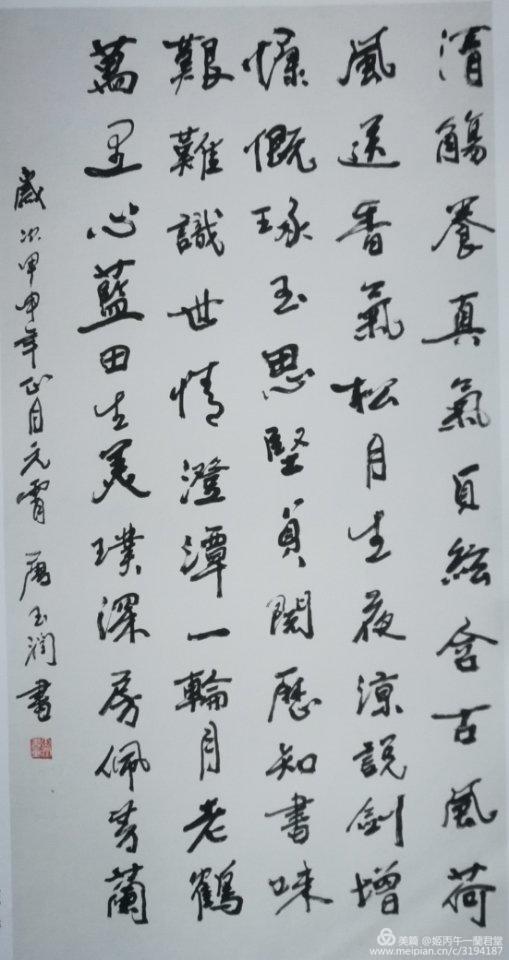 清觴養真氣貞絃含古風荷
風送香氣松月生夜涼說劍增
慷慨琢玉思堅貞閱歷知書味
艱難識世情澄潭一輪月老鶴
萬里心藍田生美璞深房佩芳蘭
歲次甲申年正月元宵 唐玉潤書
美篇 @姬丙午一蘭君堂
www.meipian.cn/c/3194187